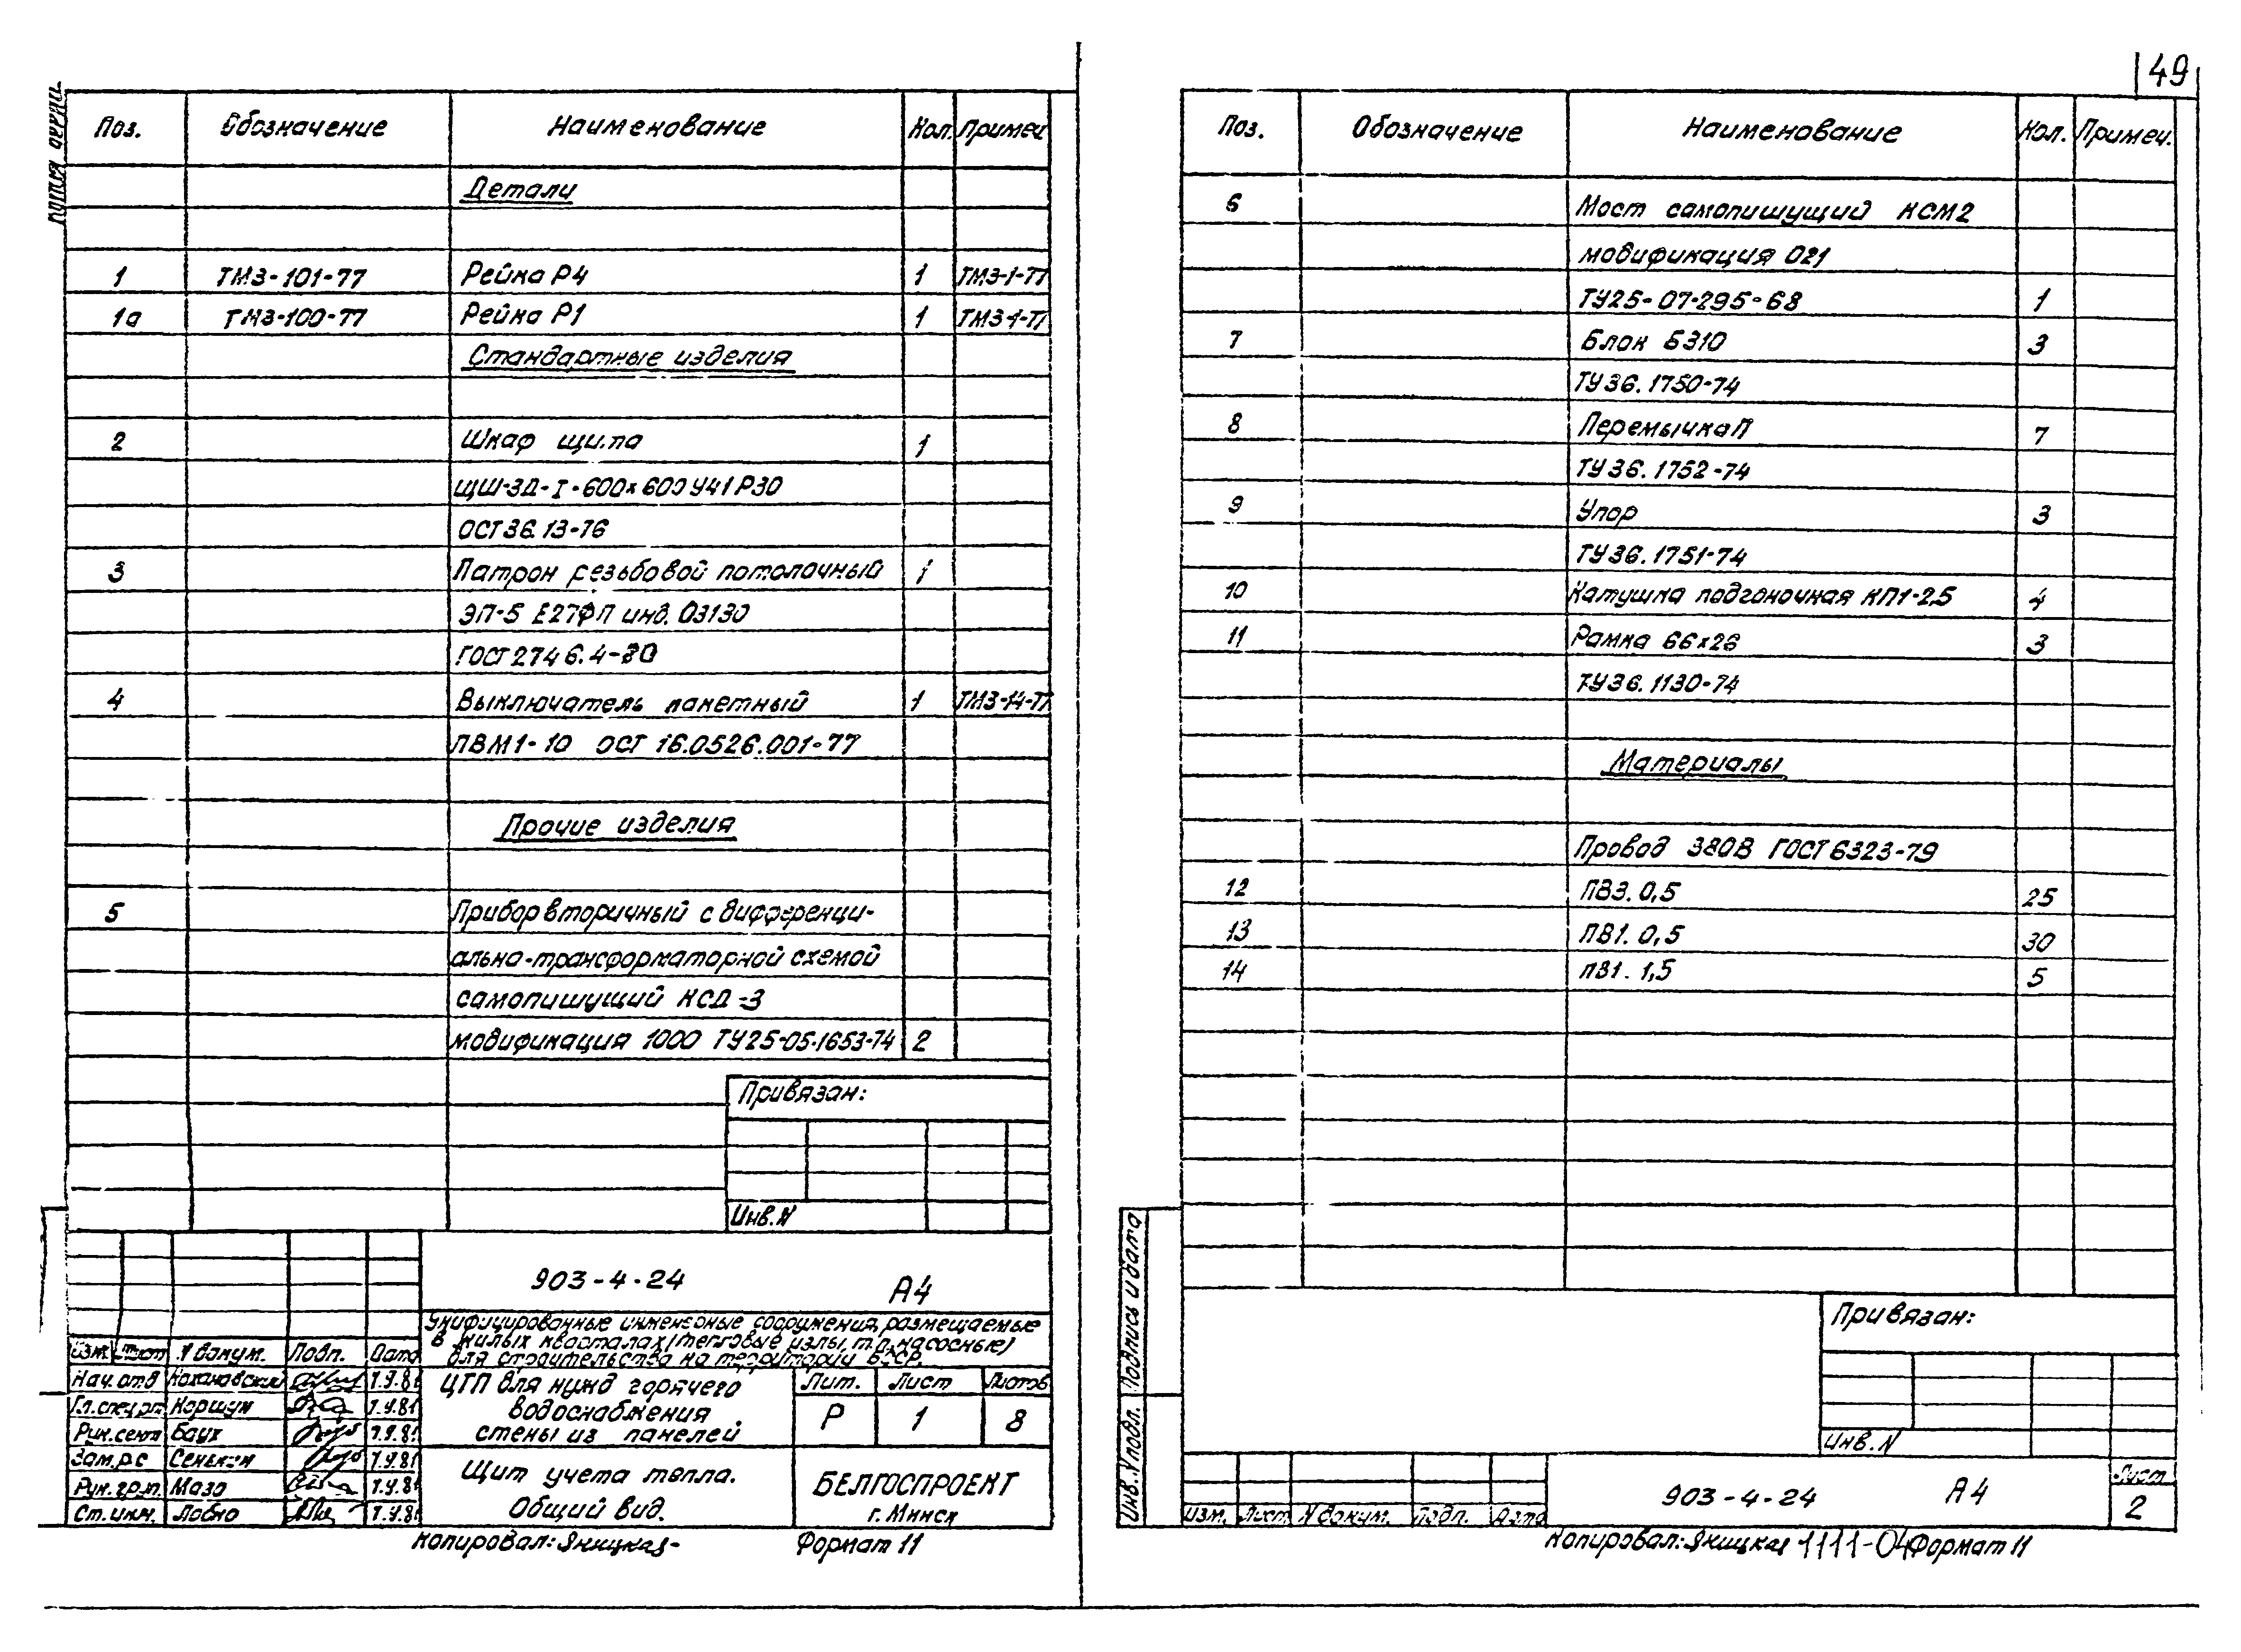 49
Поз. Обозначение Наименование Кол. Примеч
Детали
1 ТМ3-101-77 Рейка Р4 1 ТМ3-1-77
1а ТМ3-100-77 Рейка Р1 1 ТМ3-1-77
Стандартные изделия
2 Шкаф щита 1
ЩШ-3Д-I-600х600 У41Р30
ОСТ 36.13-76
3 Патрон резьбовой потолочный 1
ЭП-5 Е27ФП инд. 03130
ГОСТ 2746.4-80
4 Выключатель пакетный 1 ТМ3-14-77
ПВМ1-10 ОСТ 16.0526.001-77
Прочие изделия
5 Прибор вторичный с дифференци-
ально-трансформаторной схемой
самопишущий КСД-3
модификация 1000 ТУ25-05.1653-74 2
Привязан:
Инв.N
903-4-24 А4
Унифицированные инженерные сооружения, размещаемые
в жилых кварталах (тепловые узлы, т.п, насосные)
для строительства на территории БССР.
Изм. Лист N докум. Подп. Дата
Нач.отд Кохановский 1.У.81
Гл.спец.рп Коршун 1.У.81
Рук.сект Баух 1.У.81
Зам.рс Сенькин 1.У.81
Рук.гр.п. Мазо 1.У.81
Ст.инж. Ловно 1.У.81
ЦТП для нужд горячего
водоснабжения
стены из панелей
Лит. Лист Листов
Р 1 8
Щит учета тепла.
Общий вид.
БЕЛГОСПРОЕКТ
г. Минск
Копировал: Яницкая- Формат 11
Поз. Обозначение Наименование Кол. Примеч.
6 Мост самопишущий КСМ2
модификация 021
ТУ25-07-295-68 1
7 Блок Б310 3
ТУ36.1750-74
8 Перемычка П 7
ТУ36.1752-74
9 Упор 3
ТУ36.1751-74
10 Катушка подгоночная КП1-2,5 4
11 Рамка 66х26 3
ТУ36.1130-74
Материалы
Провод 380В ГОСТ 6323-79
12 ПВ3.0,5 25
13 ПВ1.0,5 30
14 ПВ1.1,5 5
Привязан:
Инв.N
Инв.N подл. Подпись и дата
Изм. Лист N докум. Подп. Дата
903-4-24 А4
Лист
2
Копировал: Яницкая 1111-04 Формат 11